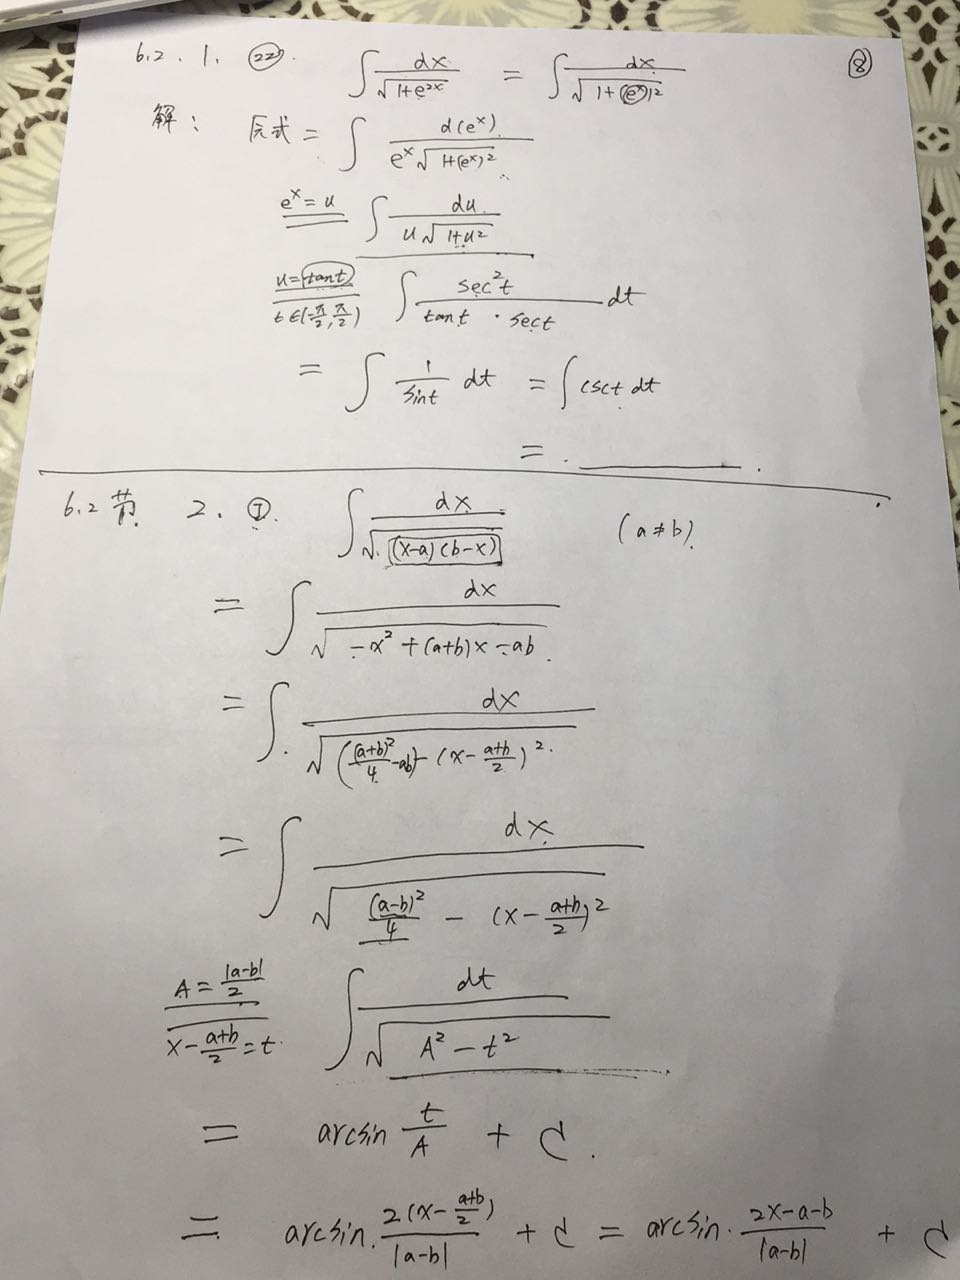 6.2 . 1. ㉒. ∫ dx/√(1+e^{2x}) = ∫ dx/√(1+(e^x)²) ⑧
解: 原式 = ∫ d(e^x)/(e^x√(1+(e^x)²))
e^x = u ∫ du/(u√(1+u²))
u = tant t∈(-π/2, π/2) ∫ sec²t/(tant · sect) dt
= ∫ 1/sint dt = ∫ csct dt
= . ________ .
6.2 节 2. ⑦. ∫ dx/√((x-a)(b-x)) (a≠b).
= ∫ dx/√(-x²+(a+b)x-ab)
= ∫ dx/√(((a+b)²/4-ab)-(x-(a+b)/2)²)
= ∫ dx/√((a-b)²/4 - (x-(a+b)/2)²)
A = |a-b|/2 x-(a+b)/2 = t ∫ dt/√(A²-t²)
= arcsin t/A + C.
= arcsin 2(x-(a+b)/2)/|a-b| + C = arcsin (2x-a-b)/|a-b| + C